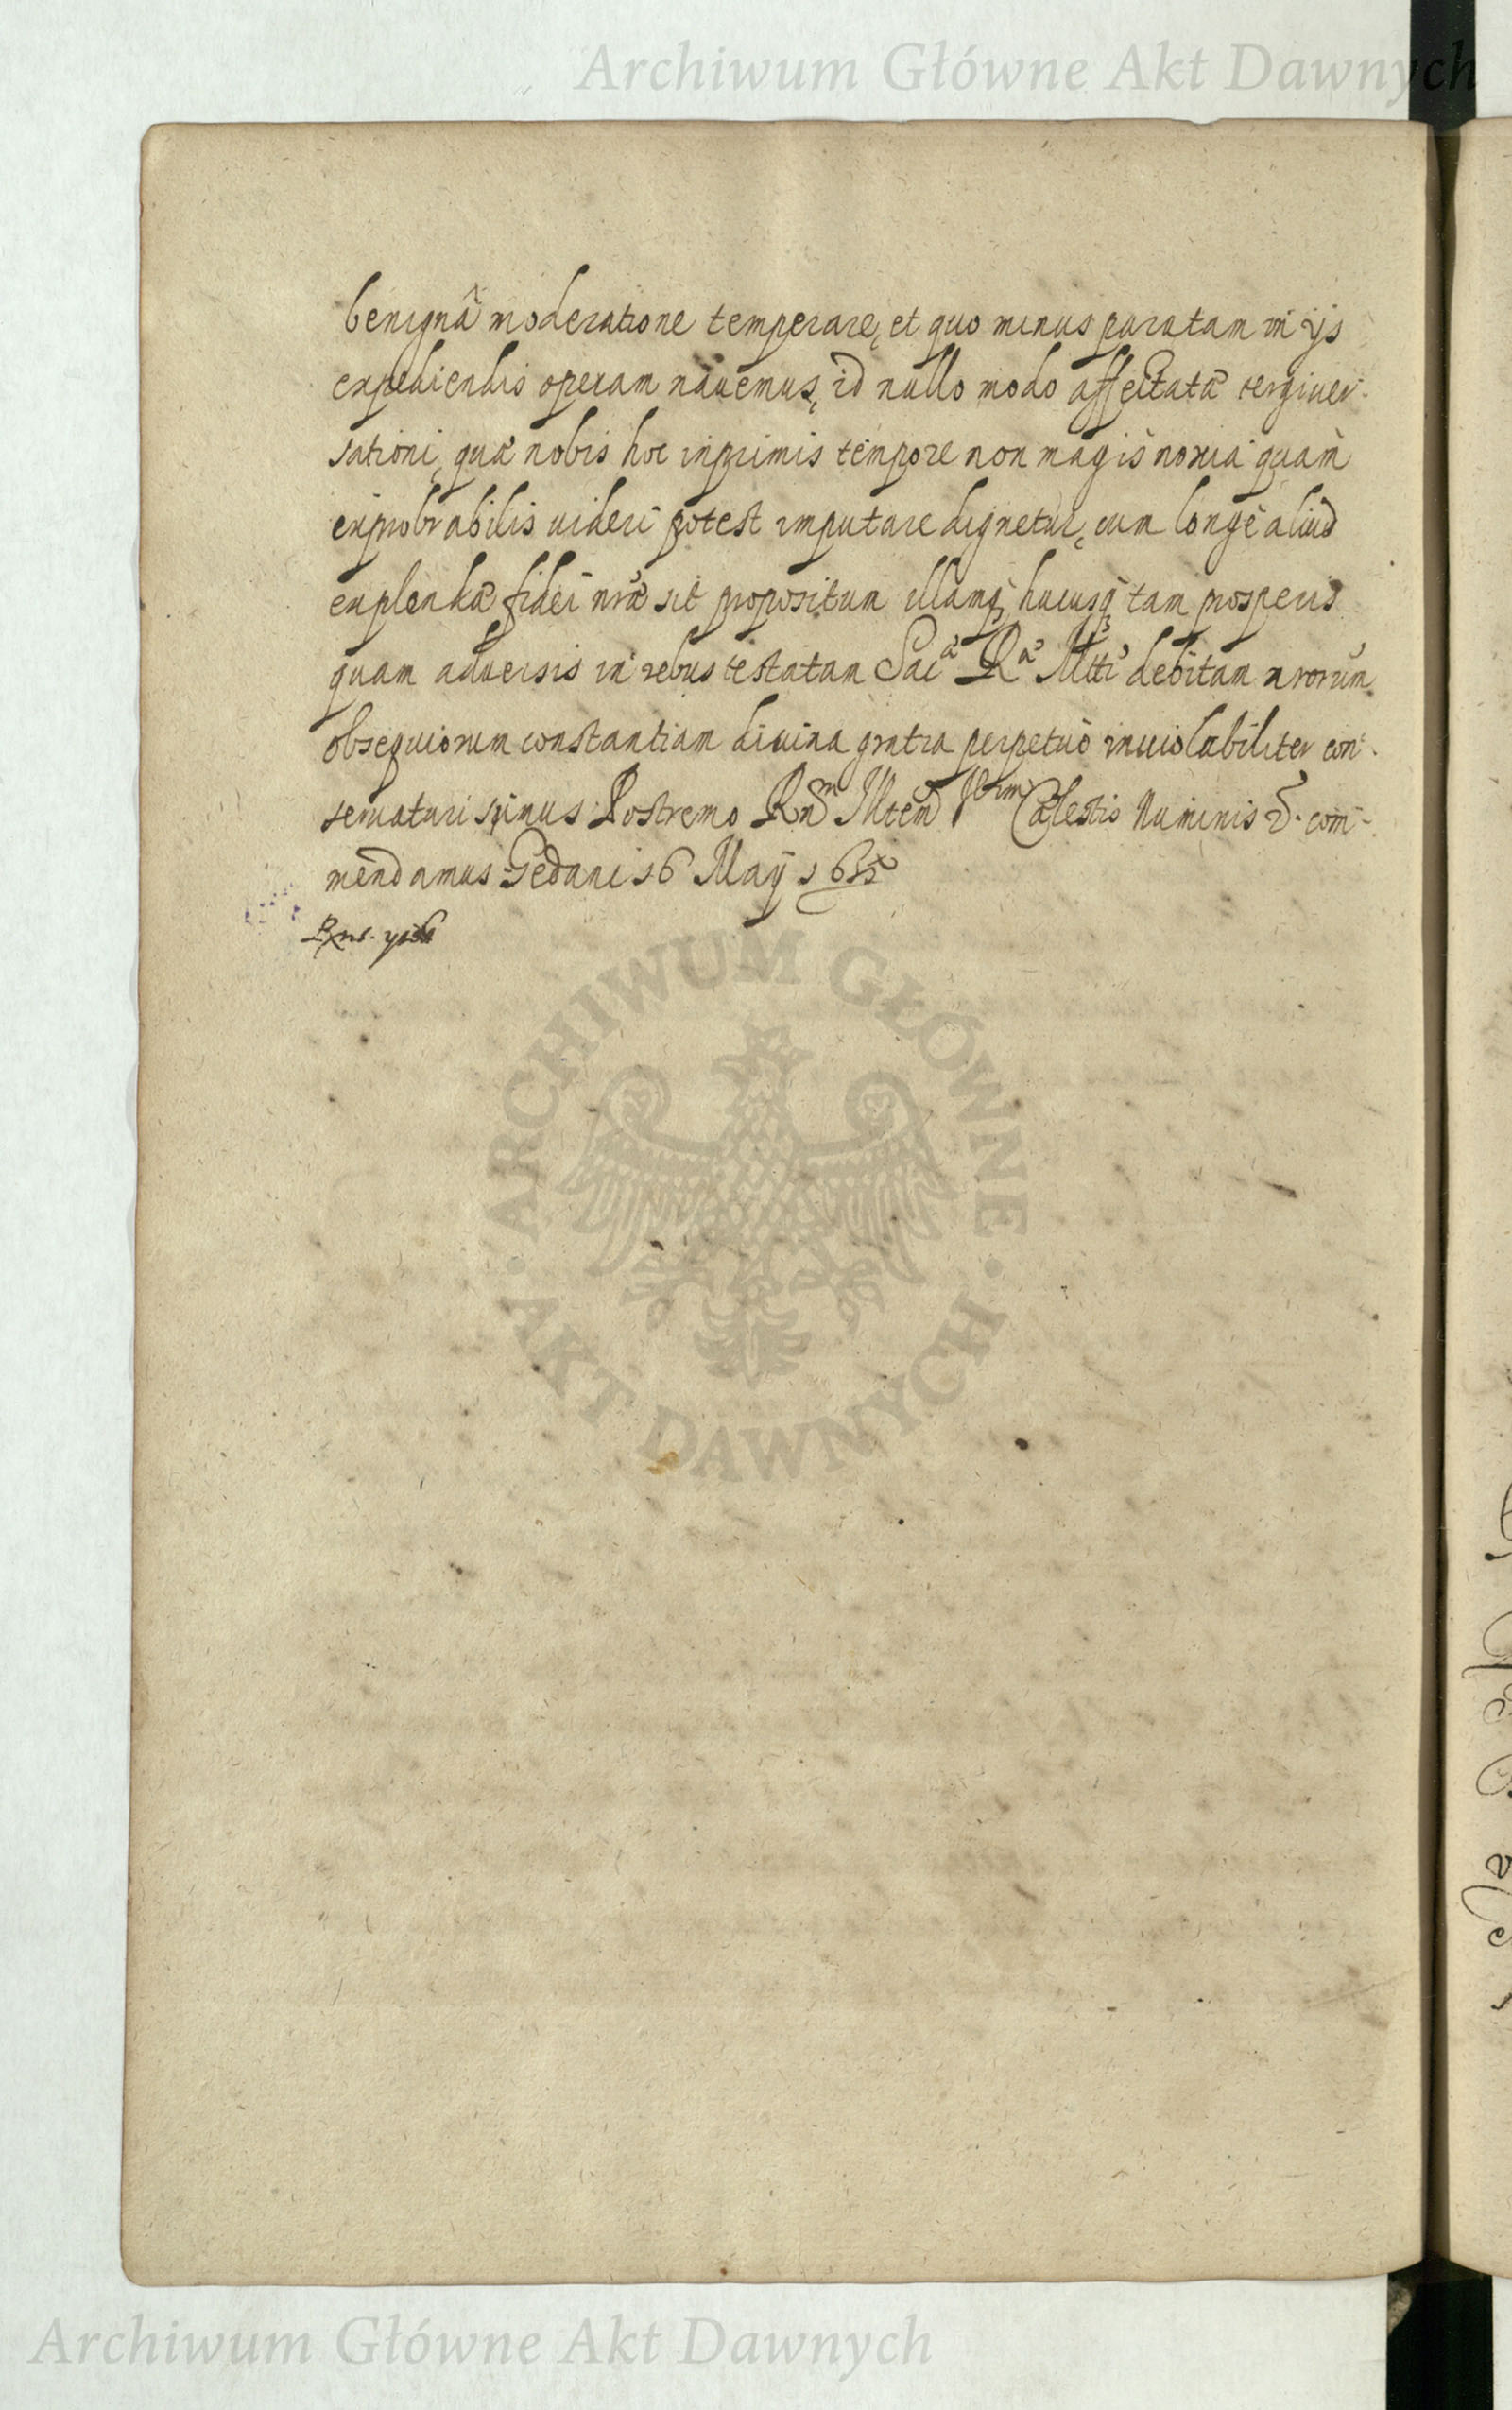 Archiwum Główne Akt Dawnych
benignâ moderatione temperare, et quo minus paratam in ijs
expediendis operam nauemus, id nullo modo affectatæ tergiuer-
sationi, quæ nobis hoc inprimis tempore non magis noxia quàm
exprobrabilis uideri potest imputare dignetur, cum longè aliud
fidei nræ sit propositum illamq hucusq tam prosperis
quam aduersis in rebus testatam Sac R Mtti debitam nrorum
obsequiorum constantiam diuina gratia perpetuò inuiolabiliter con-
seruaturi simus Postremo Rn Illtem Cælestis Numinis com-
mendamus Gedani 16 Maij
ARCHIWUM GŁÓWNE
AKT DAWNYCH
Archiwum Główne Akt Dawnych